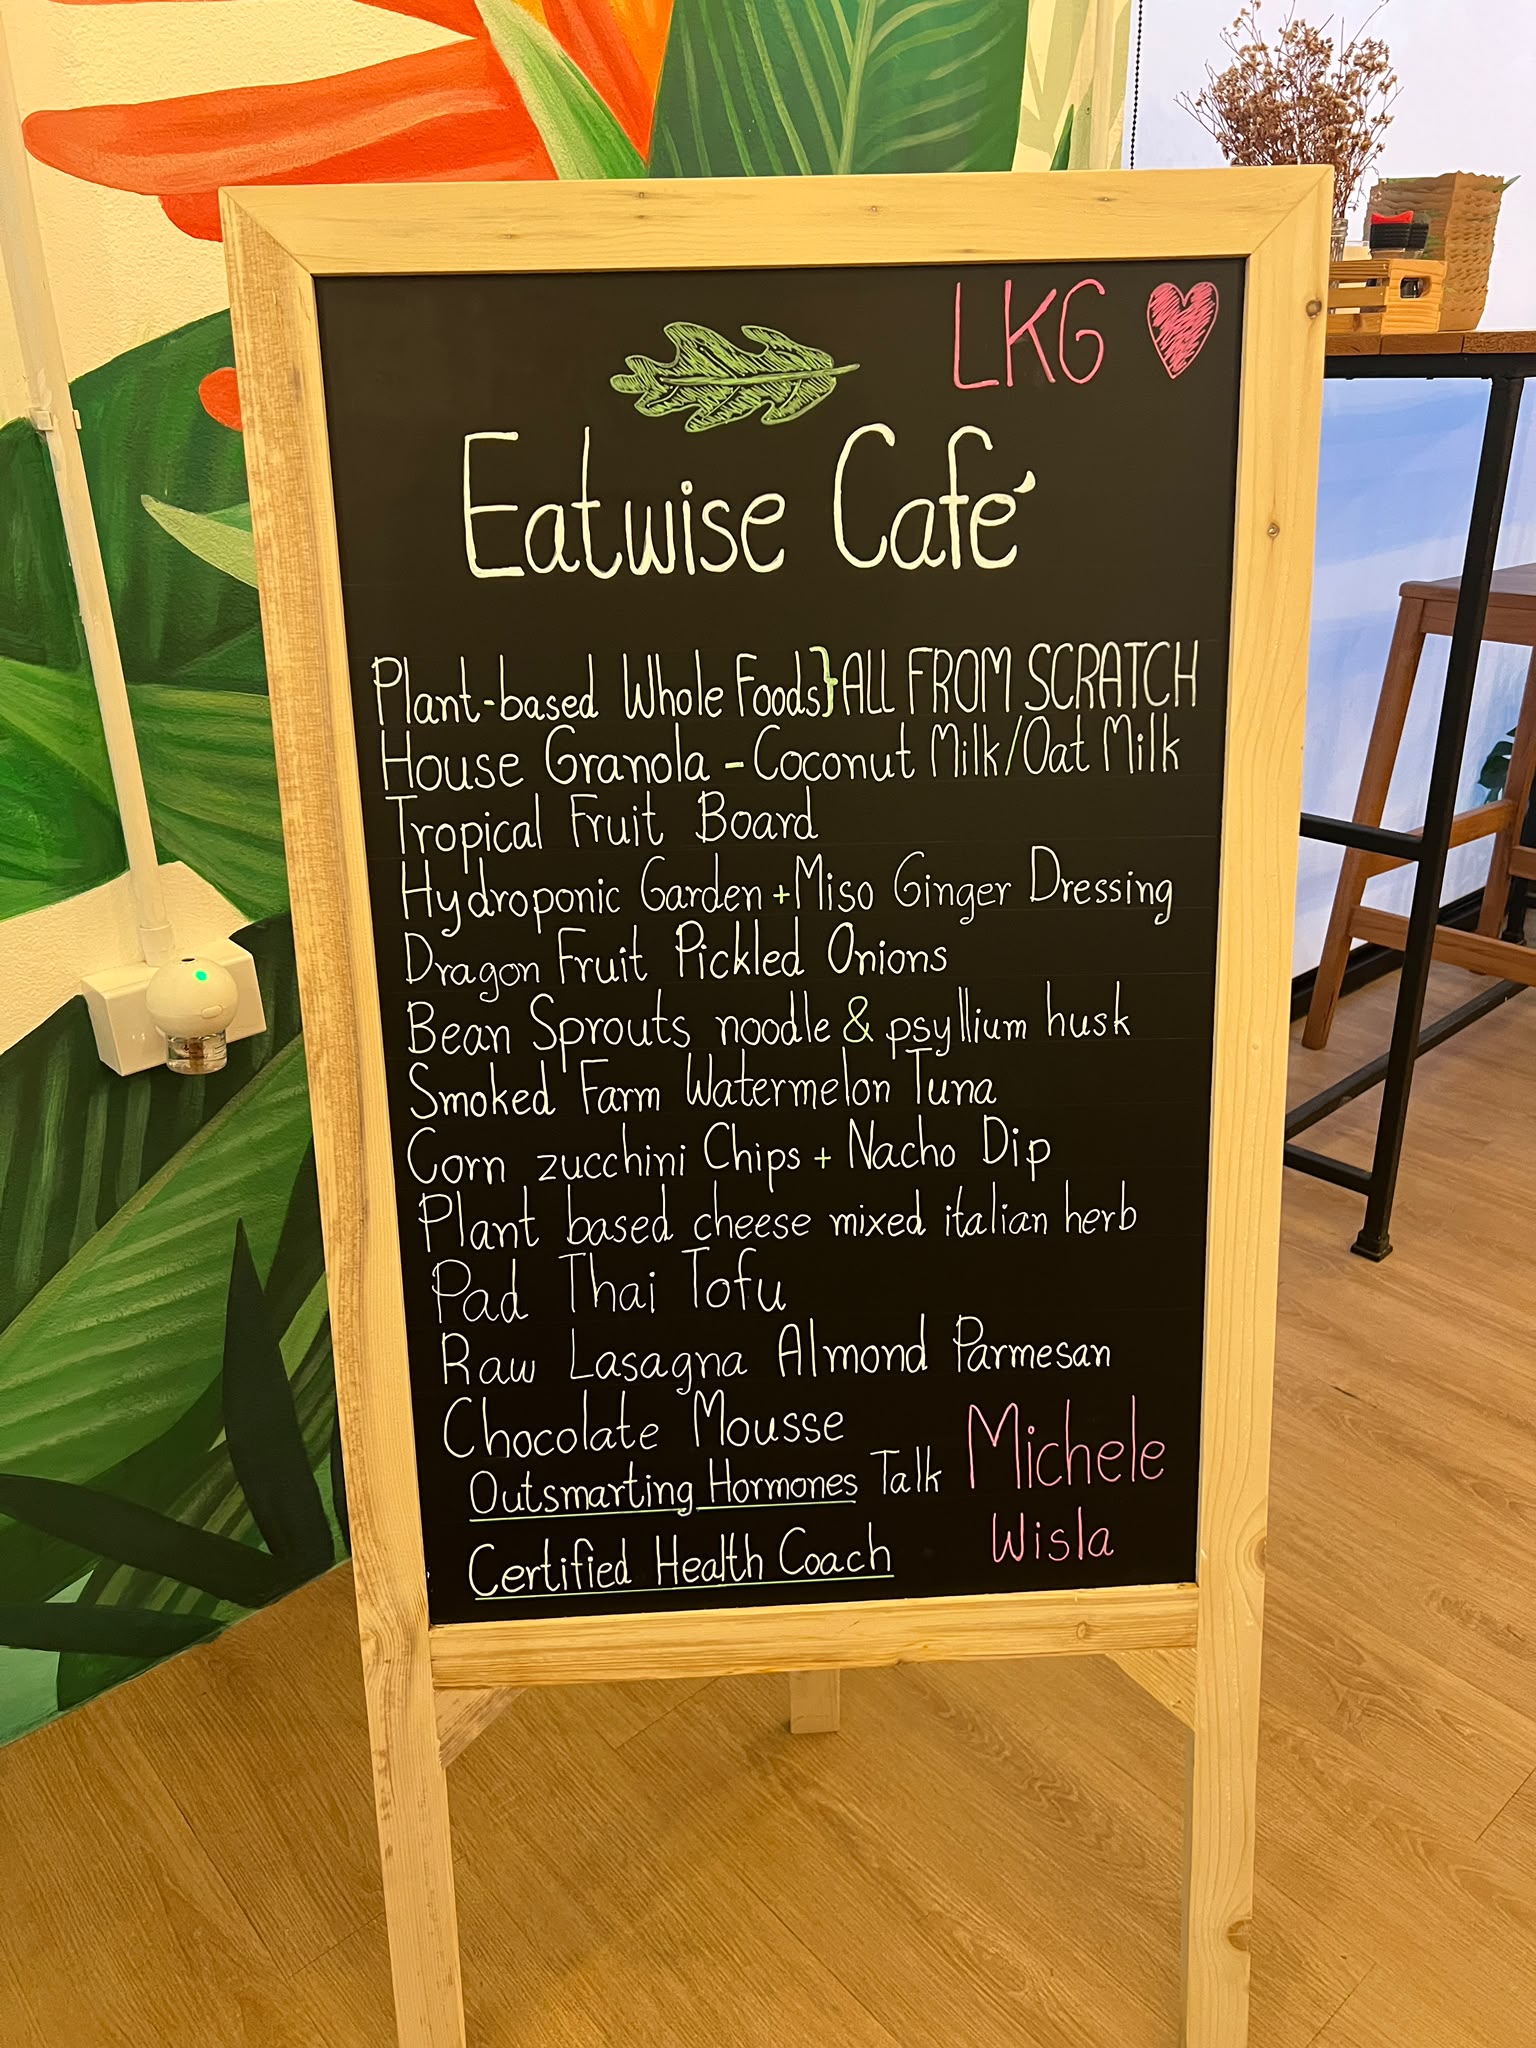 LKG
Eatwise Café
Plant-based Whole Foods} ALL FROM SCRATCH
House Granola - Coconut Milk/Oat Milk
Tropical Fruit Board
Hydroponic Garden + Miso Ginger Dressing
Dragon Fruit Pickled Onions
Bean Sprouts noodle & psyllium husk
Smoked Farm Watermelon Tuna
Corn zucchini Chips + Nacho Dip
Plant based cheese mixed italian herb
Pad Thai Tofu
Raw Lasagna Almond Parmesan
Chocolate Mousse
Outsmarting Hormones Talk Michele
Certified Health Coach Wisla